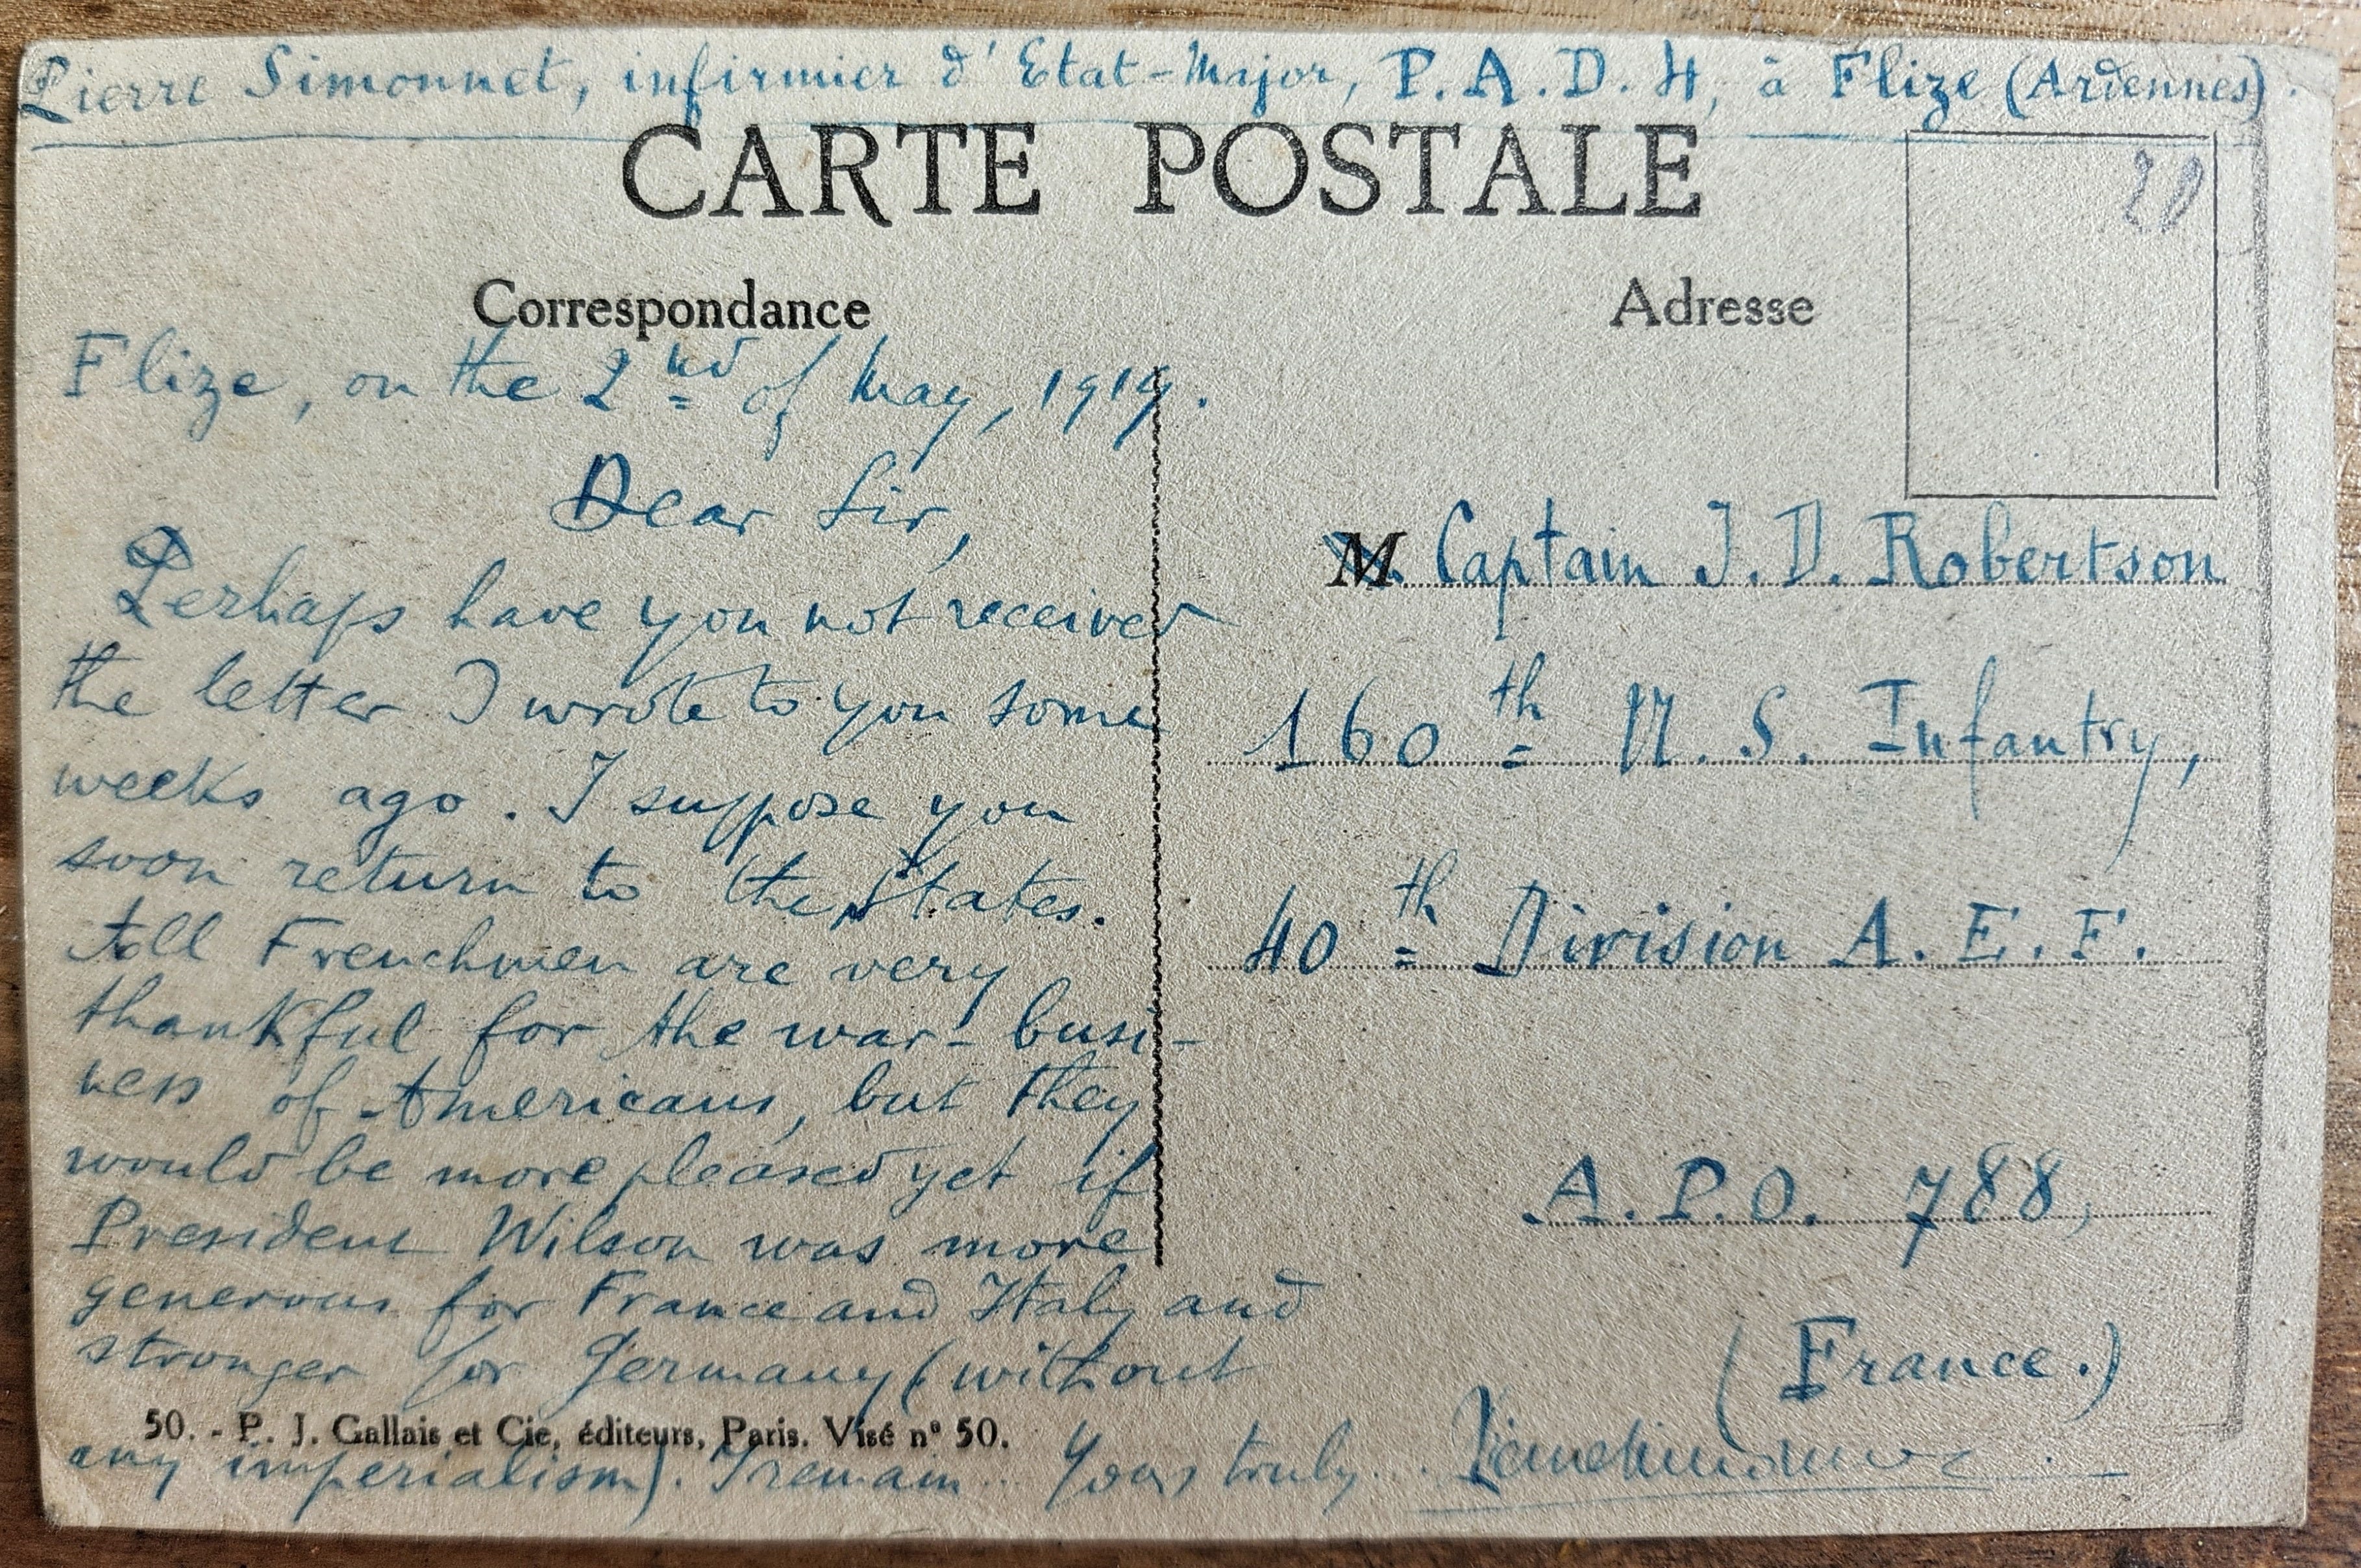 Pierre Simonnet, infirmier d'Etat-Major, P.A.D.4, à Flize (Ardennes).
CARTE POSTALE
20
Correspondance
Flize, on the 2nd of May, 1919.
Dear Sir,
Perhaps have you not received
the letter I wrote to you some
weeks ago. I suppose you
soon return to the States.
All Frenchmen are very
thankful for the war-busi-
ness of Americans, but they
would be more pleased yet if
President Wilson was more
generous for France and Italy and
stronger for Germany (without
50. - P. J. Gallais et Cie, éditeurs, Paris. Visé n° 50.
any imperialism). I remain... Yours truly... Pierre Simonnet.
Adresse
M. Captain J. D. Robertson
160th U. S. Infantry,
40th Division A. E. F.
A. P. O. 788,
(France.)